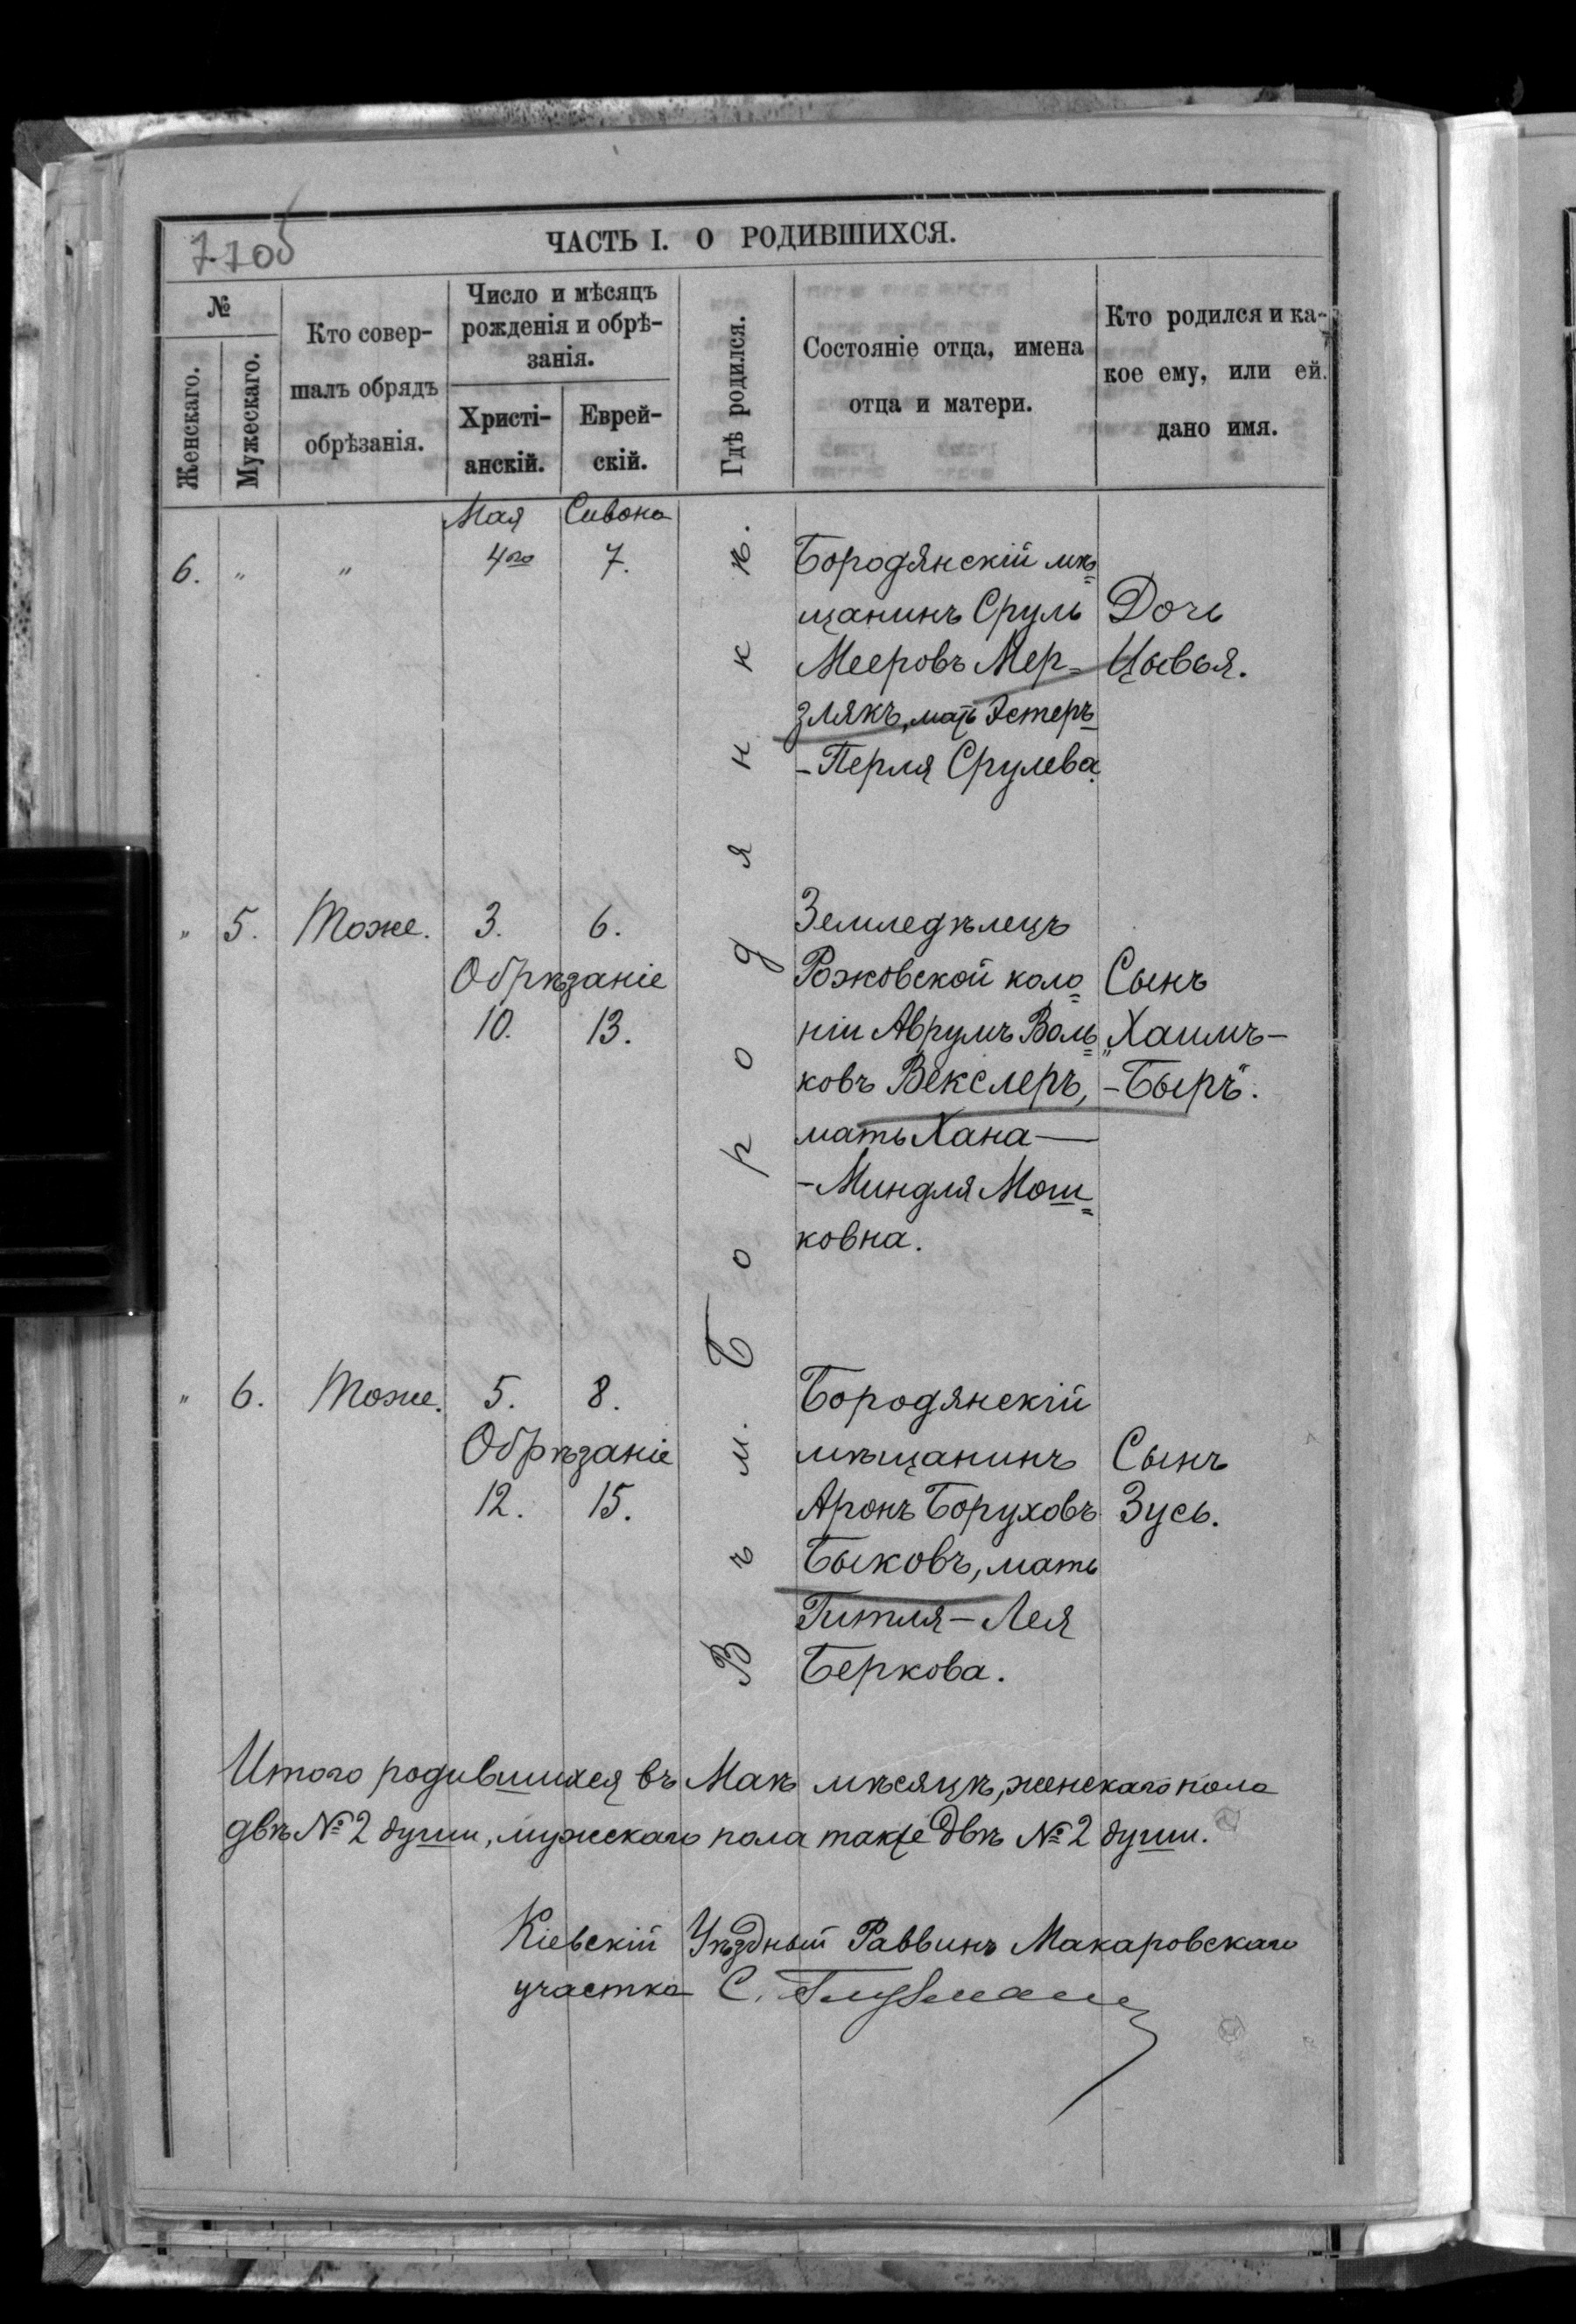 7-70б
ЧАСТЬ I. О РОДИВШИХСЯ.
№
Женскаго.
Мужескаго.
Кто совер-
шалъ обрядъ
обрѣзанія.
Число и мѣсяцъ
рожденія и обрѣ-
занія.
Христі-
анскій.
Еврей-
скій.
Гдѣ родился.
Состояніе отца, имена
отца и матери.
Кто родился и ка-
кое ему, или ей.
дано имя.
Мая Сивона
Въ м. Бородянкѣ.
6. " " 4го 7. Бородянскій мѣ=
щанинъ Сруль Дочь
Мееровъ Мер= Цывья.
злякъ, мать Эстеръ
-Перля Срулева.
" 5. Тоже. 3. 6. Земледѣлецъ
Обрѣзаніе Рожовской коло= Сынъ
10. 13. ніи Аврумъ Воль= „Хаимъ-
ковъ Векслеръ, -Быръ".
мать Хана-
-Миндля Мош=
ковна.
" 6. Тоже. 5. 8. Бородянскій
Обрѣзаніе мѣщанинъ Сынъ
12. 15. Аронъ Боруховъ Зусь.
Быковъ, мать
Гитля-Лея
Беркова.
Итого родившихся въ Маѣ мѣсяцѣ, женскаго пола
двѣ № 2 души, мужескаго пола также двѣ № 2 души.
Кіевскій Уѣздный Раввинъ Макаровскаго
участка С.